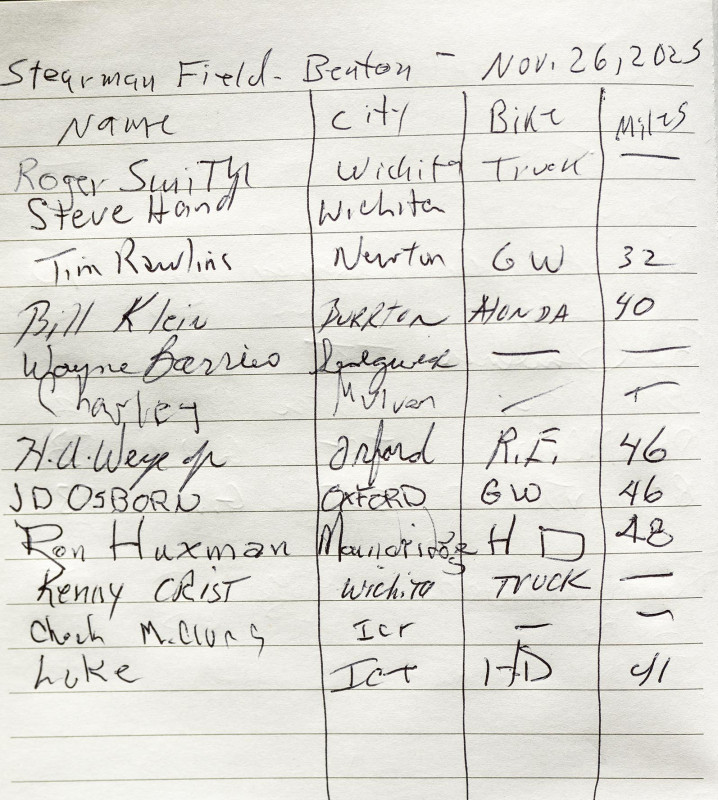 Stearman Field - Benton - Nov. 26, 2025
Name City Bike Miles
Roger Smith Wichita Truck —
Steve Hand Wichita
Tim Rawlins Newton GW 32
Bill Klein BURRTON HONDA 40
Wayne Barrieo Sedgwick — —
Charley Mulvan — —
H.U. Oxford R.E. 46
JD OSBORN OXFORD GW 46
Ron Huxman Moundridge HD 48
Kenny CRIST Wichita TRUCK —
Chuck McClung Ict — —
Luke Ict HD 41